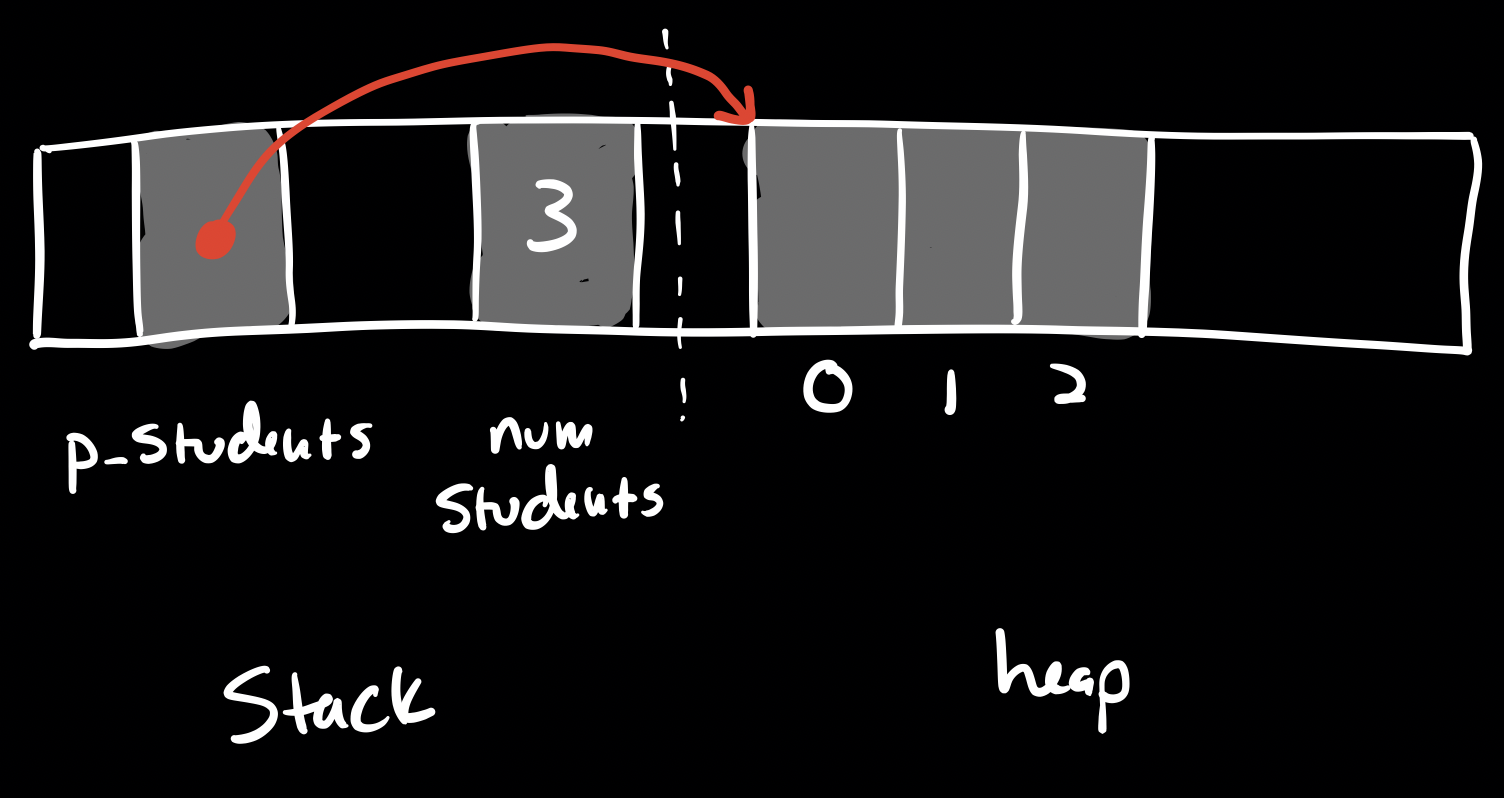 3
0 1 2
p_students
num
Students
Stack
heap